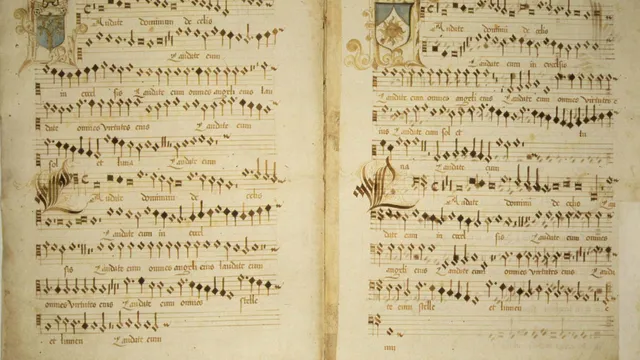 Laudate dominum de celis
Laudate eum
in excel sis Laudate eum omnes angeli eius lau
date omnes virtutes eius Laudate eum
sol et luna Laudate eum
Laudate dominum de celis
Laudate eum in excel
sis Laudate eum omnes angeli eius laudate eum
omnes virtutes eius Laudate eum omnes stelle
et lumen Laudate eum
Laudate domini de celis
Laudate eum in excelsis
Laudate eum omnes angeli Laudate eum omnes virtutes e
ius Laudate eum sol et lu
na Laudate eum
Laudate domini de celis
date eum in excel sis Laudate eum omnes
angeli eius Laudate eum omnes virtutes eius
te eum stelle et lumen